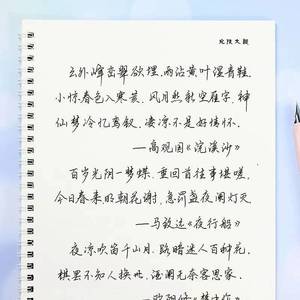 云外峰峦翠欲埋.雨沾黄叶湿青鞋.
小惊春色入寒荄.风月愁新空雁字,神
仙梦冷忆鸾钗.凄凉不是好情怀.
——高观国《浣溪沙》
百岁光阴一梦蝶,重回首往事堪嗟,
今日春来明朝花谢,急罚盏夜阑灯灭
——马致远《夜行船》
夜凉吹笛千山月,路暗迷人百种花,
棋罢不知人换世,酒阑无奈客思家.
——欧阳修《梦中作》